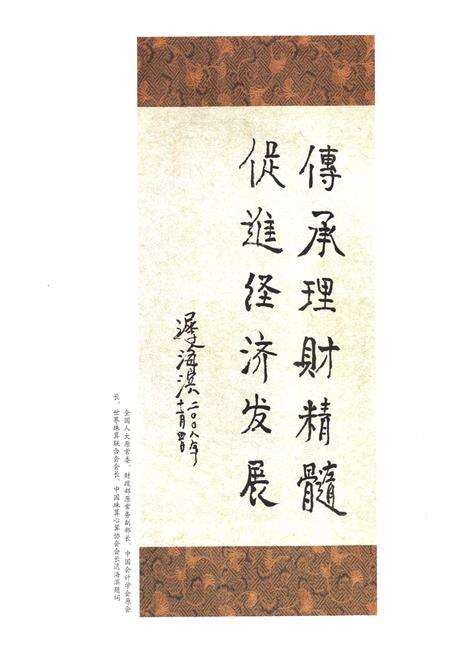 傳承理財精髓
促進经济发展
遲海滨 二〇〇八年
十一月四日
全国人大原常委、财政部原常务副部长、中国会计学会原会
长、世界珠算联合会会长、中国珠算心算协会会长迟海滨题词